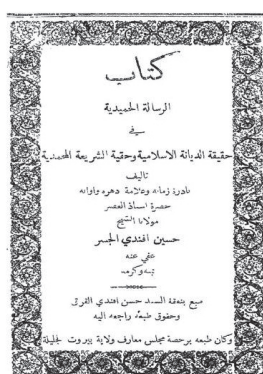 كتاب
الرسالة الحميدية
في
حقيقة الديانة الاسلامية وحقية الشريعة المحمدية
تاليف
نادرة زمانه وعلامة دهره واوانه
حضرة استاذ العصر
مولانا الشيخ
حسين افندي الجسر
عفي عنه
بمنه وكرمه
طبع بنفقة السيد حسن افندي القرق
وحقوق طبعه راجعه اليه
وكان طبعه برخصة مجلس معارف ولاية بيروت الجليلة